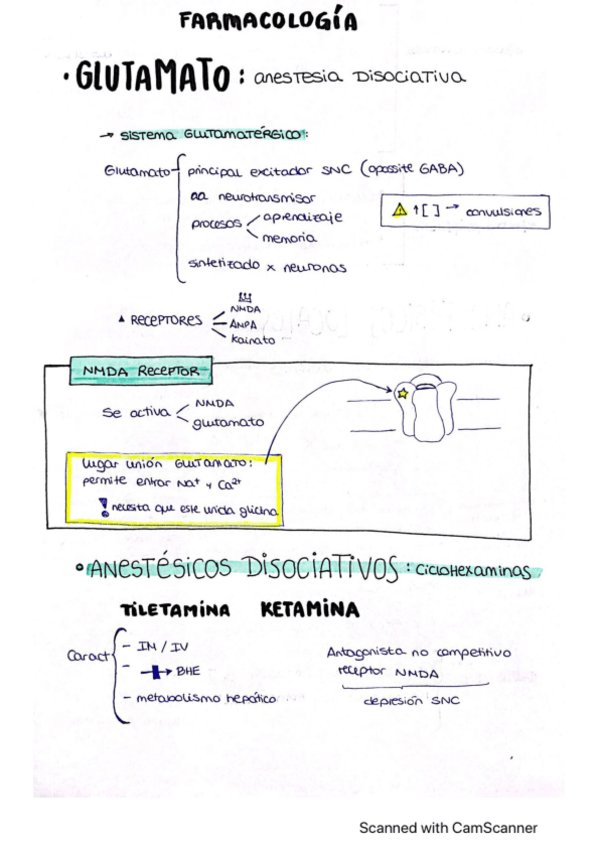 FARMACOLOGÍA
• GLUTAMATO: anestesia Disociativa
→ SISTEMA GLUTAMATÉRGICO:
Glutamato
principal excitador SNC (oposite GABA)
aa neurotransmisor
procesos
aprendizaje
memoria
sintetizado x neuronas
⚠ ↑[ ] → convulsiones
▲ RECEPTORES
!!!
NMDA
AMPA
Kainato
NMDA RECEPTOR
Se activa
NMDA
glutamato
Lugar unión GLUTAMATO:
permite entrar Na⁺ y Ca²⁺
! necesita que este unida glicina
• ANESTÉSICOS DISOCIATIVOS: CicloHexaminas
TILETAMINA KETAMINA
Caract
- IM / IV
- BHE
- metabolismo hepático
Antagonista no competitivo
receptor NMDA
depresión SNC
Scanned with CamScanner